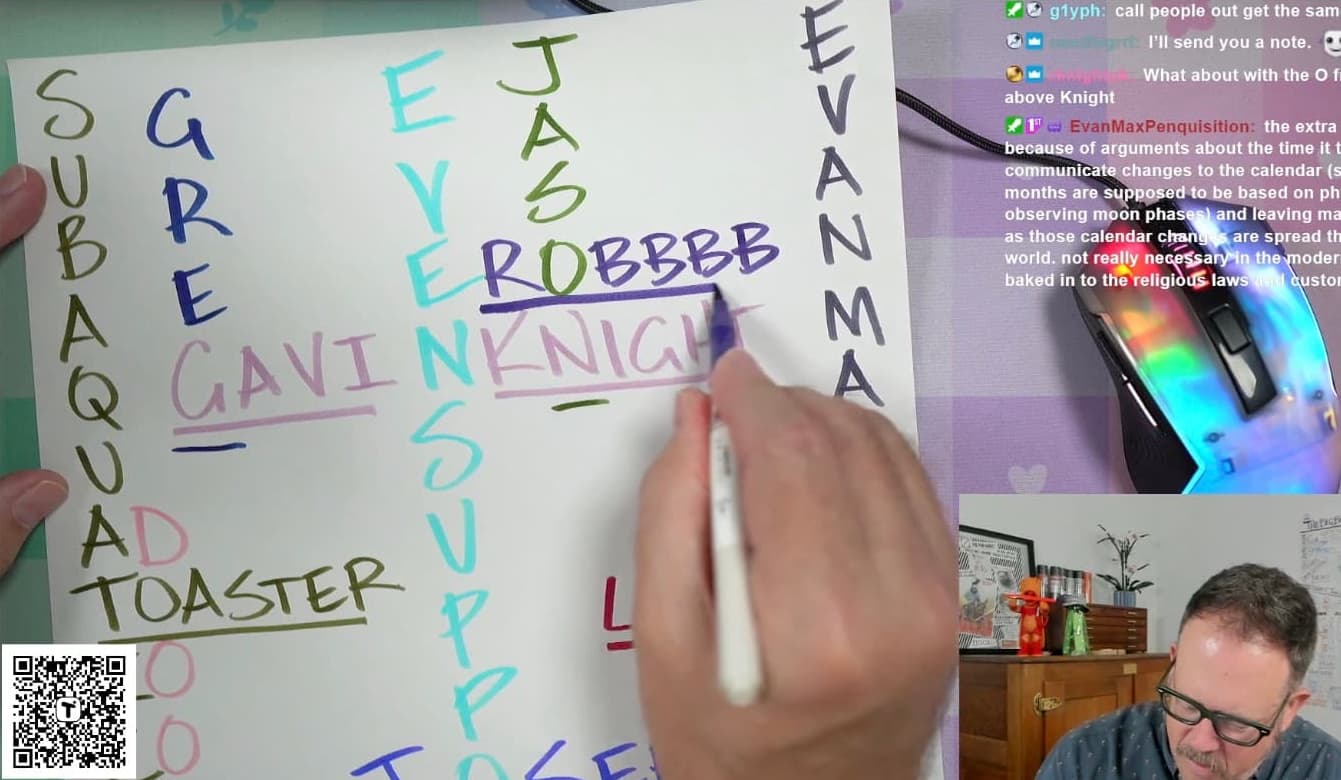 SUBAQUATOO
GRE
EVENSUPPO
JASO
EVANMA
ROBBBB
GAVIN
KNIGHT
D
TOASTER
L
g1yph: call people out get the sam
I'll send you a note.
What about with the O f
above Knight
EvanMaxPenquisition: the extra
because of arguments about the time it t
communicate changes to the calendar (s
months are supposed to be based on ph
observing moon phases) and leaving ma
as those calendar changes are spread th
world. not really necessary in the moder
baked in to the religious laws and custo
T